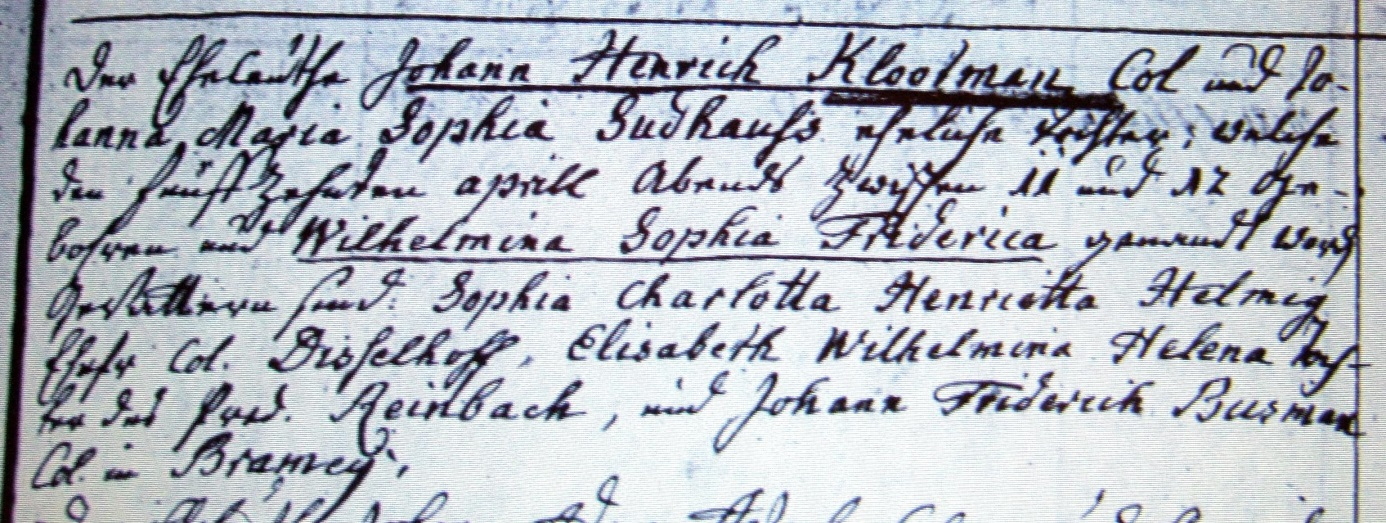 Der Eheleuthe Johann Henrich Klootman Col und Jo-
hanna Maria Sophia Sudhauss eheliche tochter; welche
den funfzehnden aprill Abends zwischen 11 und 12 Ge-
bohren und Wilhelmina Sophia Friderica genandt word
Gevattern sind: Sophia Charlotta Henrietta Helmig
Ehefr Col. Disselhoff, Elisabeth Wilhelmina Helena toch-
ter des Pred. Reinbach, und Johann Friderich Busman
Col. in Bramey.